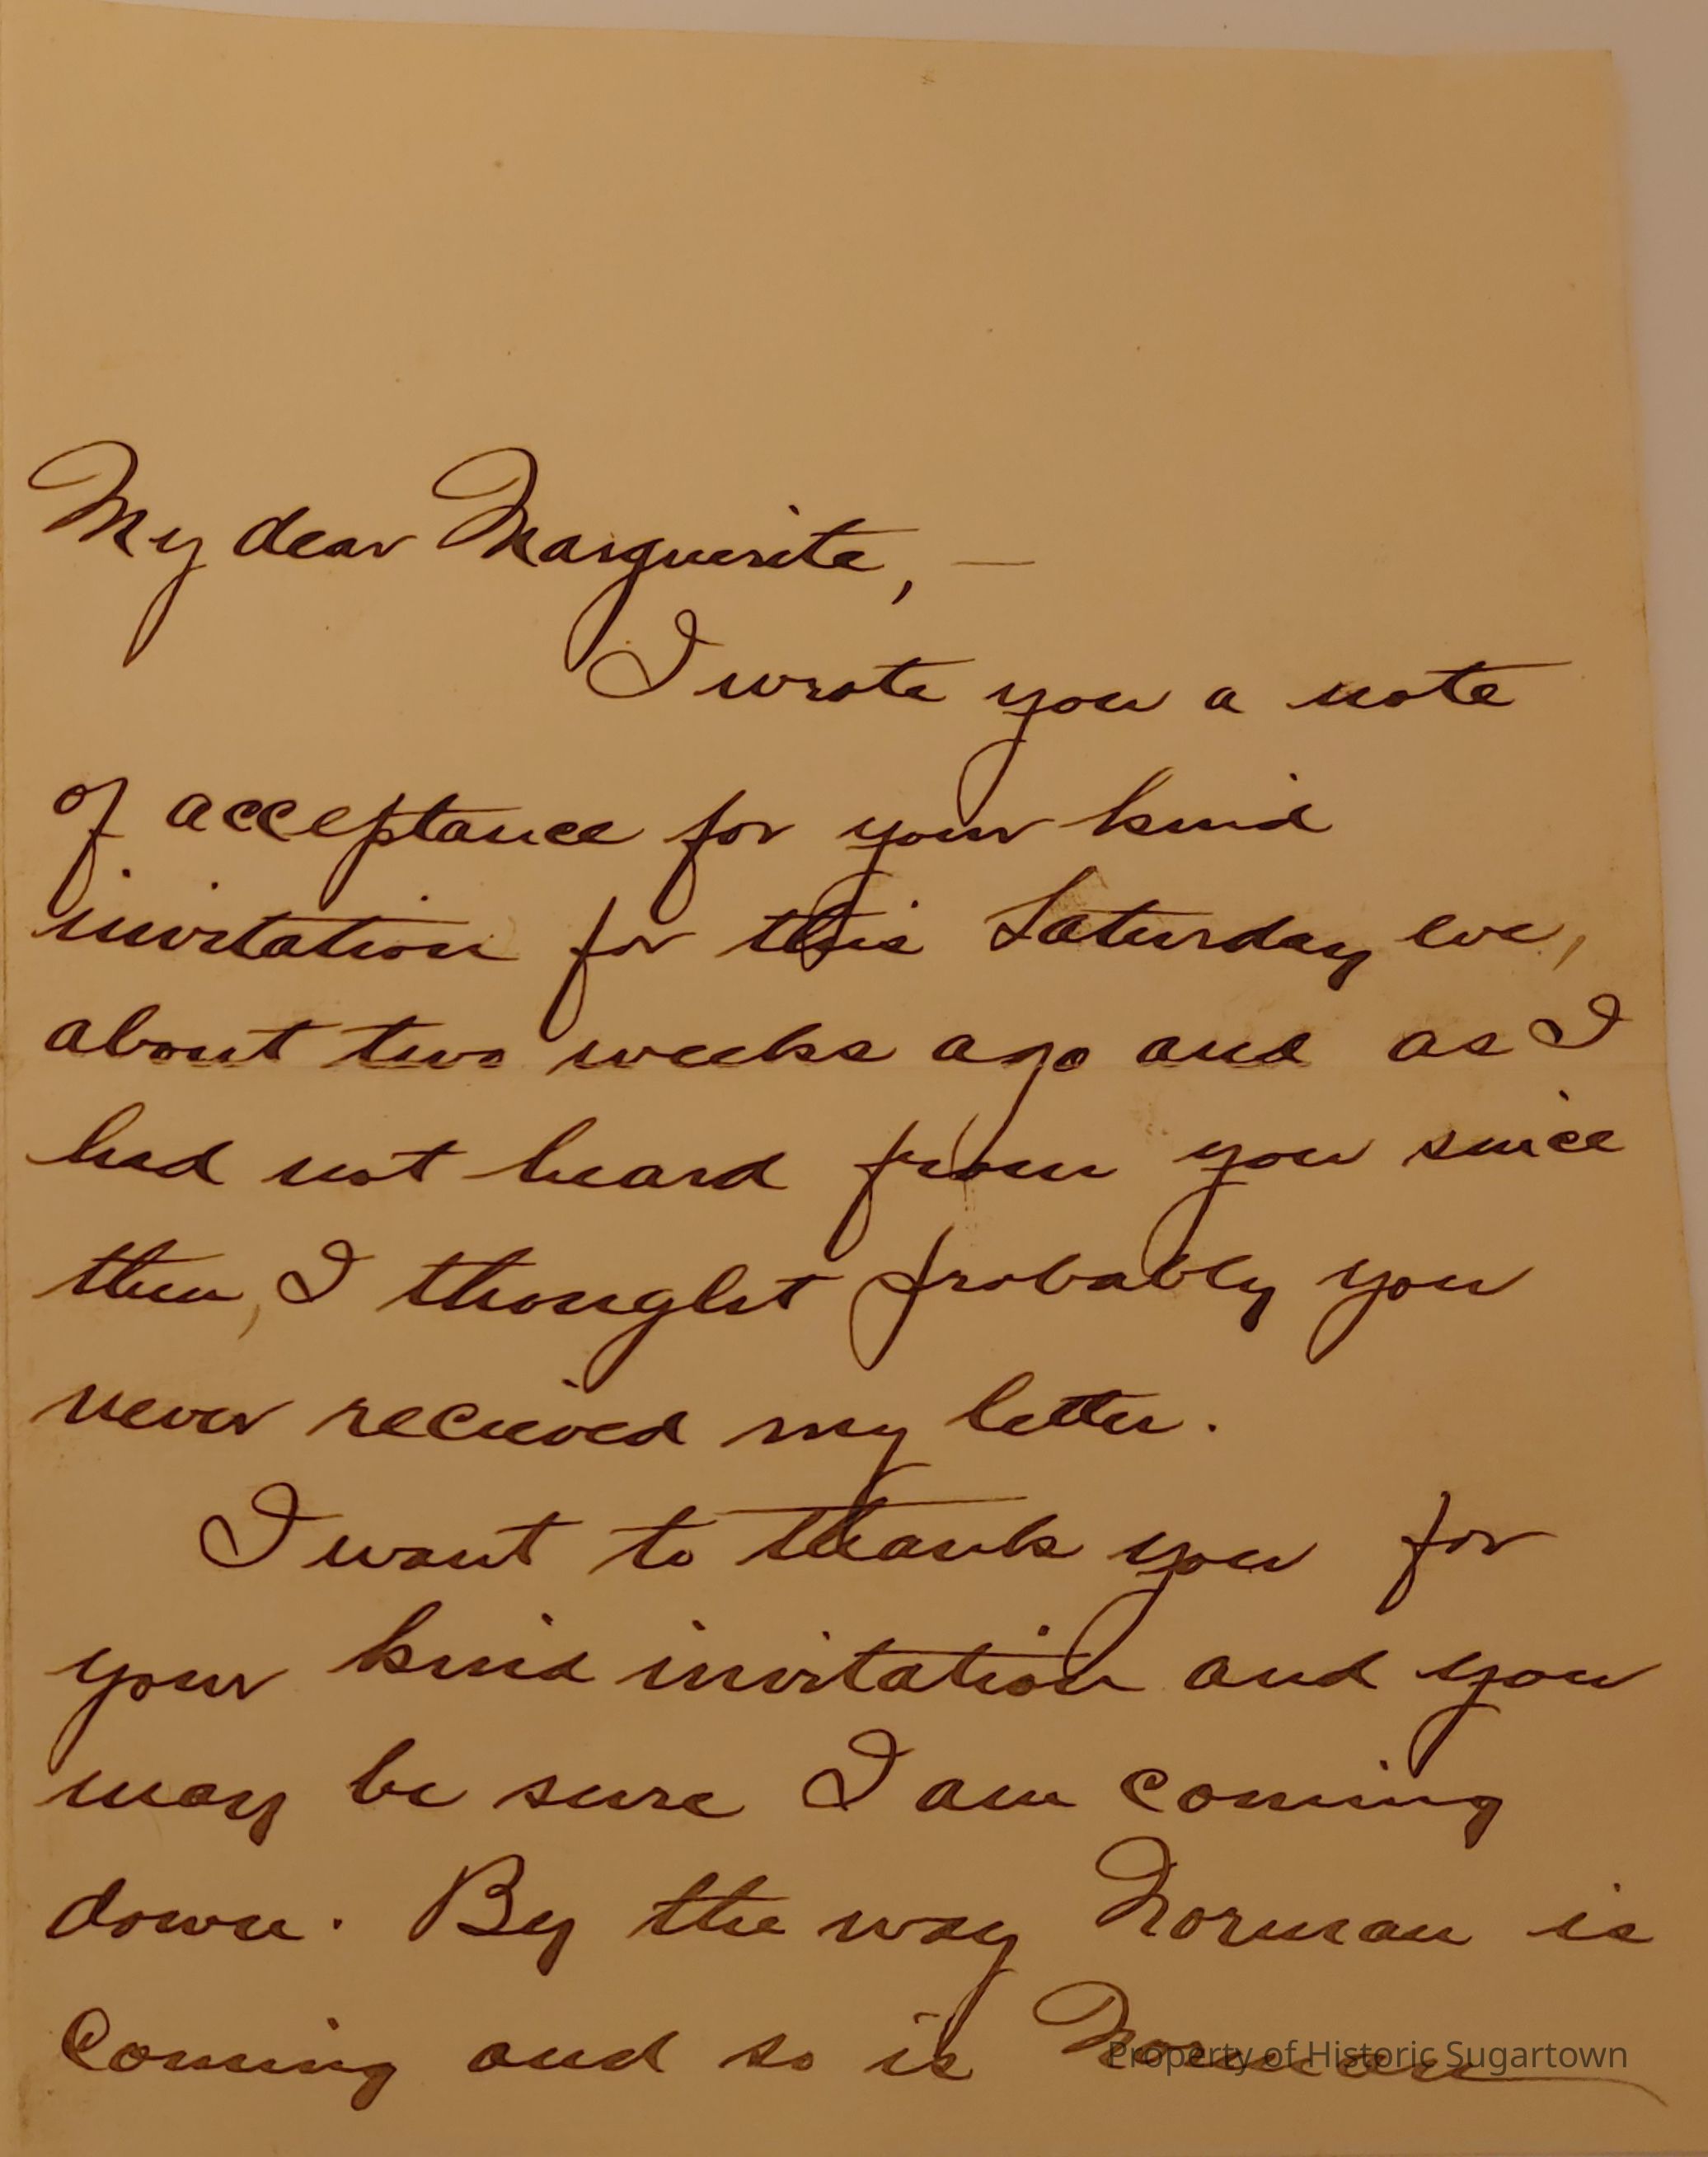 My dear Marguerite, —
I wrote you a note
of acceptance for your kind
invitation for this Saturday eve,
about two weeks ago and as I
had not heard from you since
then, I thought probably you
never recieved my letter.
I want to thank you for
your kind invitation and you
may be sure I am coming
down. By the way Norman is
coming and so is Norman
Property of Historic Sugartown